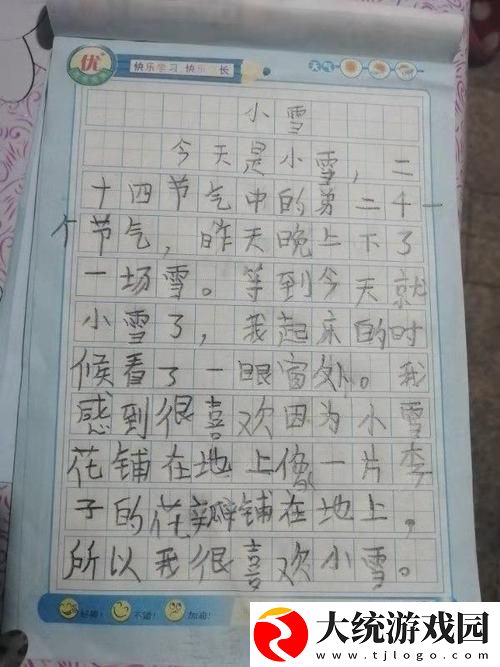 优
快乐学习 快乐成长
天气
小雪
今天是小雪，二
十四节气中的第二十一
个节气，昨天晚上下了
一场雪。等到今天就
小雪了，我起床的时
候看了一眼窗外。我
感到很喜欢因为小雪
花铺在地上像一片李
子的花瓣铺在地上，
所以我很喜欢小雪。
好棒！ 不错！ 加油！
大统游戏园
www.tjlogo.com